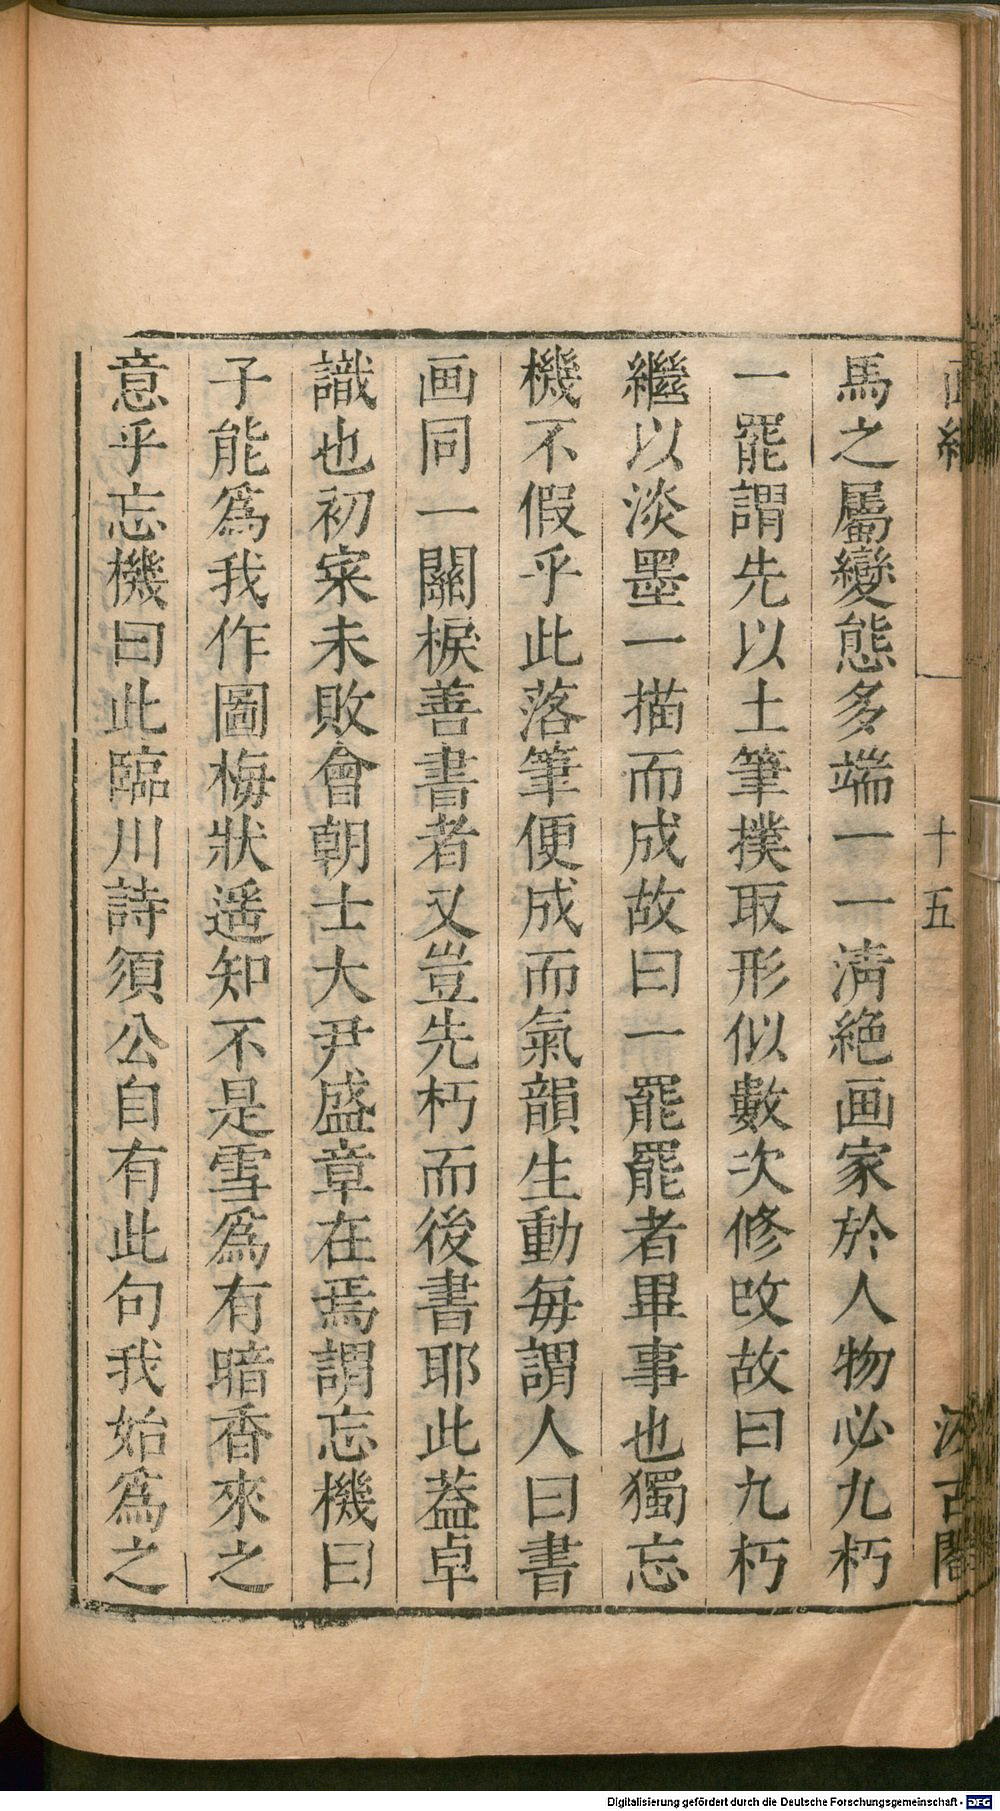 十五
馬之屬變態多端一一淸絶画家於人物必九朽
一罷謂先以土筆撲取形似數次修改故曰九朽
繼以淡墨一描而成故曰一罷罷者畢事也獨忘
機不假乎此落筆便成而氣韻生動每謂人曰書
画同一關棙善書者又豈先朽而後書耶此葢卓
識也初寀未敗會朝士大尹盛章在焉謂忘機曰
子能爲我作圖梅狀遥知不是雪爲有暗香來之
意乎忘機曰此臨川詩須公自有此句我始爲之
Digitalisierung gefördert durch die Deutsche Forschungsgemeinschaft - DFG